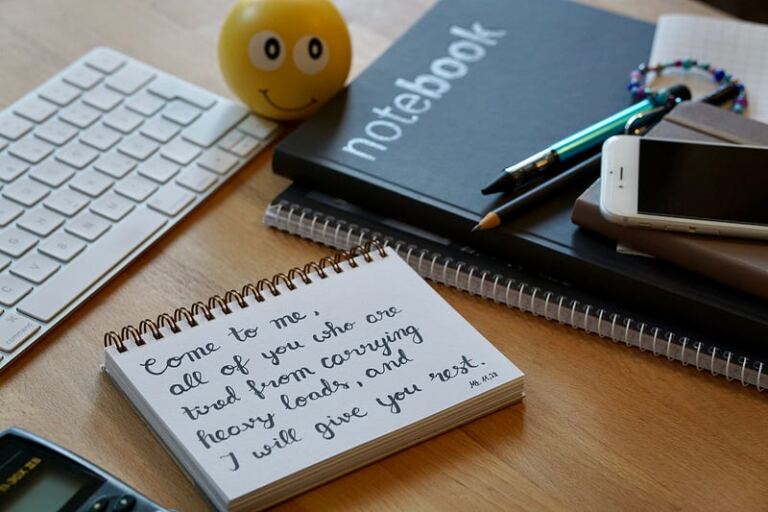 notebook
Come to me,
all of you who are
tired from carrying
heavy loads, and
I will give you rest.
Mt. 11,28
command